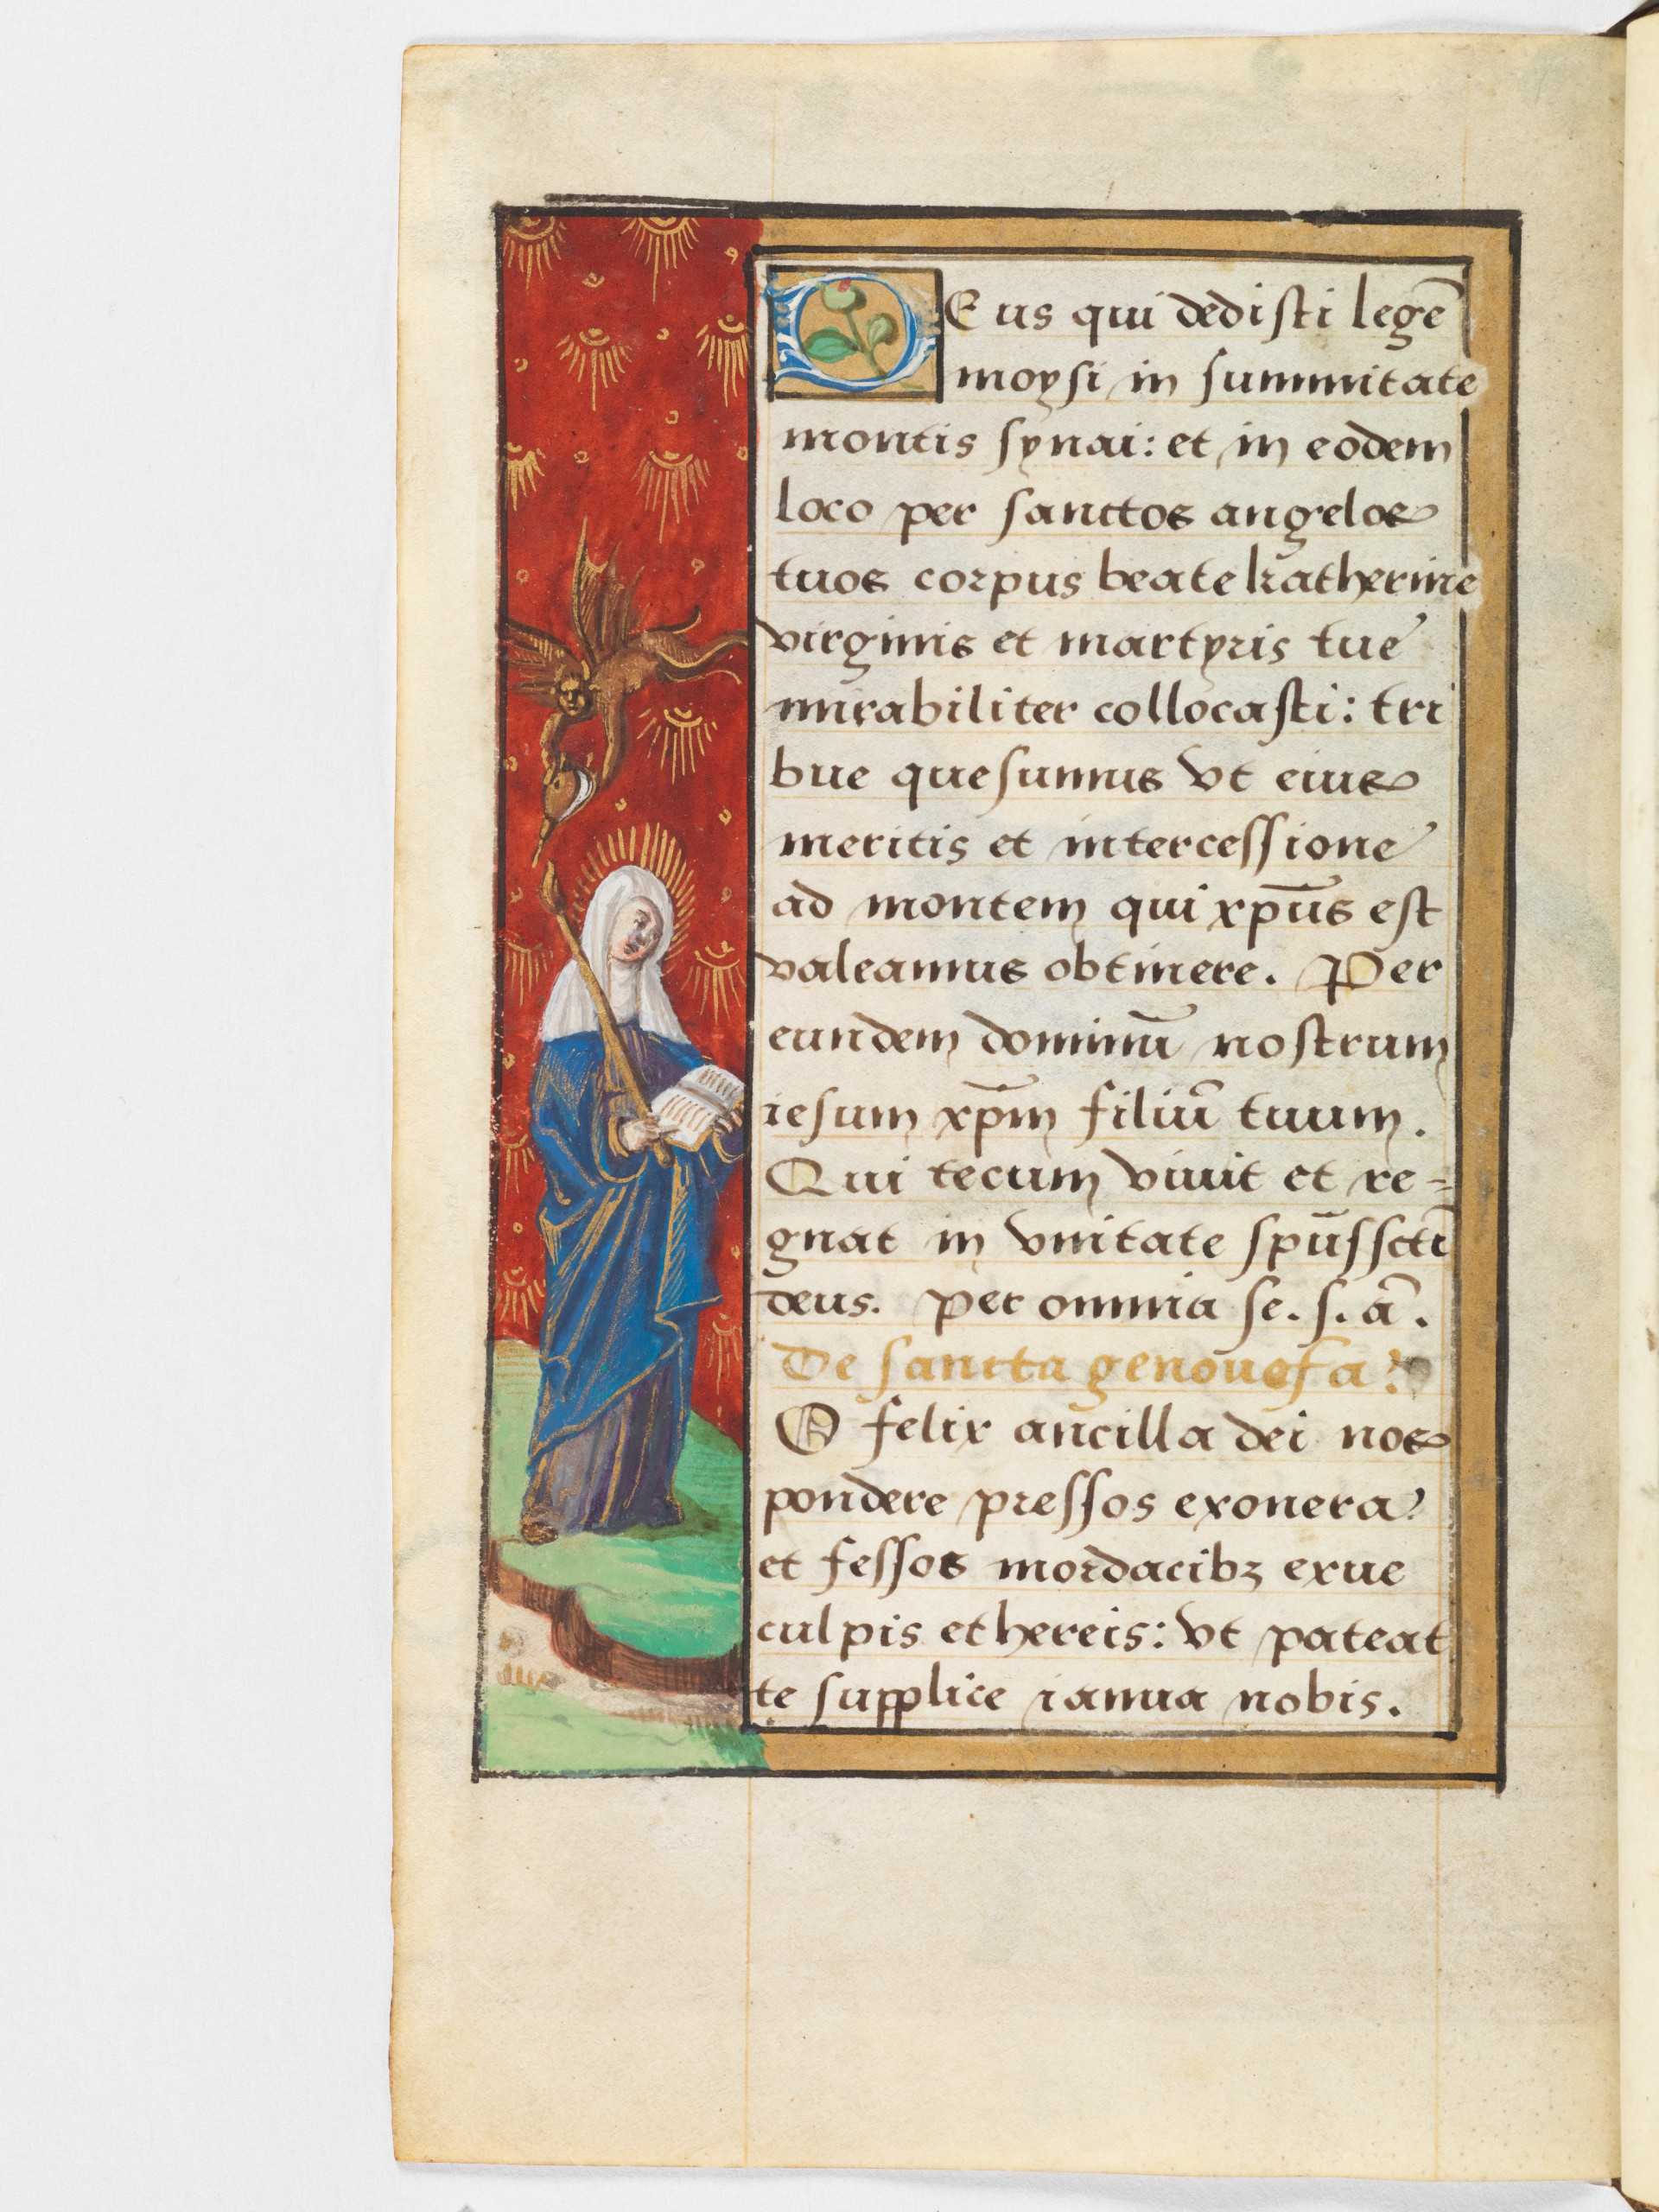 DEus qui dedisti legē
moysi in summitate
montis synai: et in eodem
loco per sanctos angelos
tuos corpus beate katherine
virginis et martyris tue
mirabiliter collocasti: tri
bue quesumus vt eius
meritis et intercessione
ad montem qui xpūs est
valeamus obtinere. Per
eundem dominū nostrum
iesum xp̄m filiū tuum.
Qui tecum viuit et re-
gnat in vnitate spūssctī
deus. per omnia se. s. ā.
De sancta genouefa.
O felix ancilla dei nos
pondere pressos exonera
et fessos mordacibꝫ exue
culpis ethereis: vt pateat
te supplice ianua nobis.